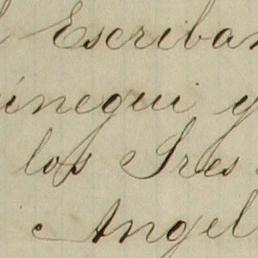 l Escriban
inegui y
los Sres
Angel